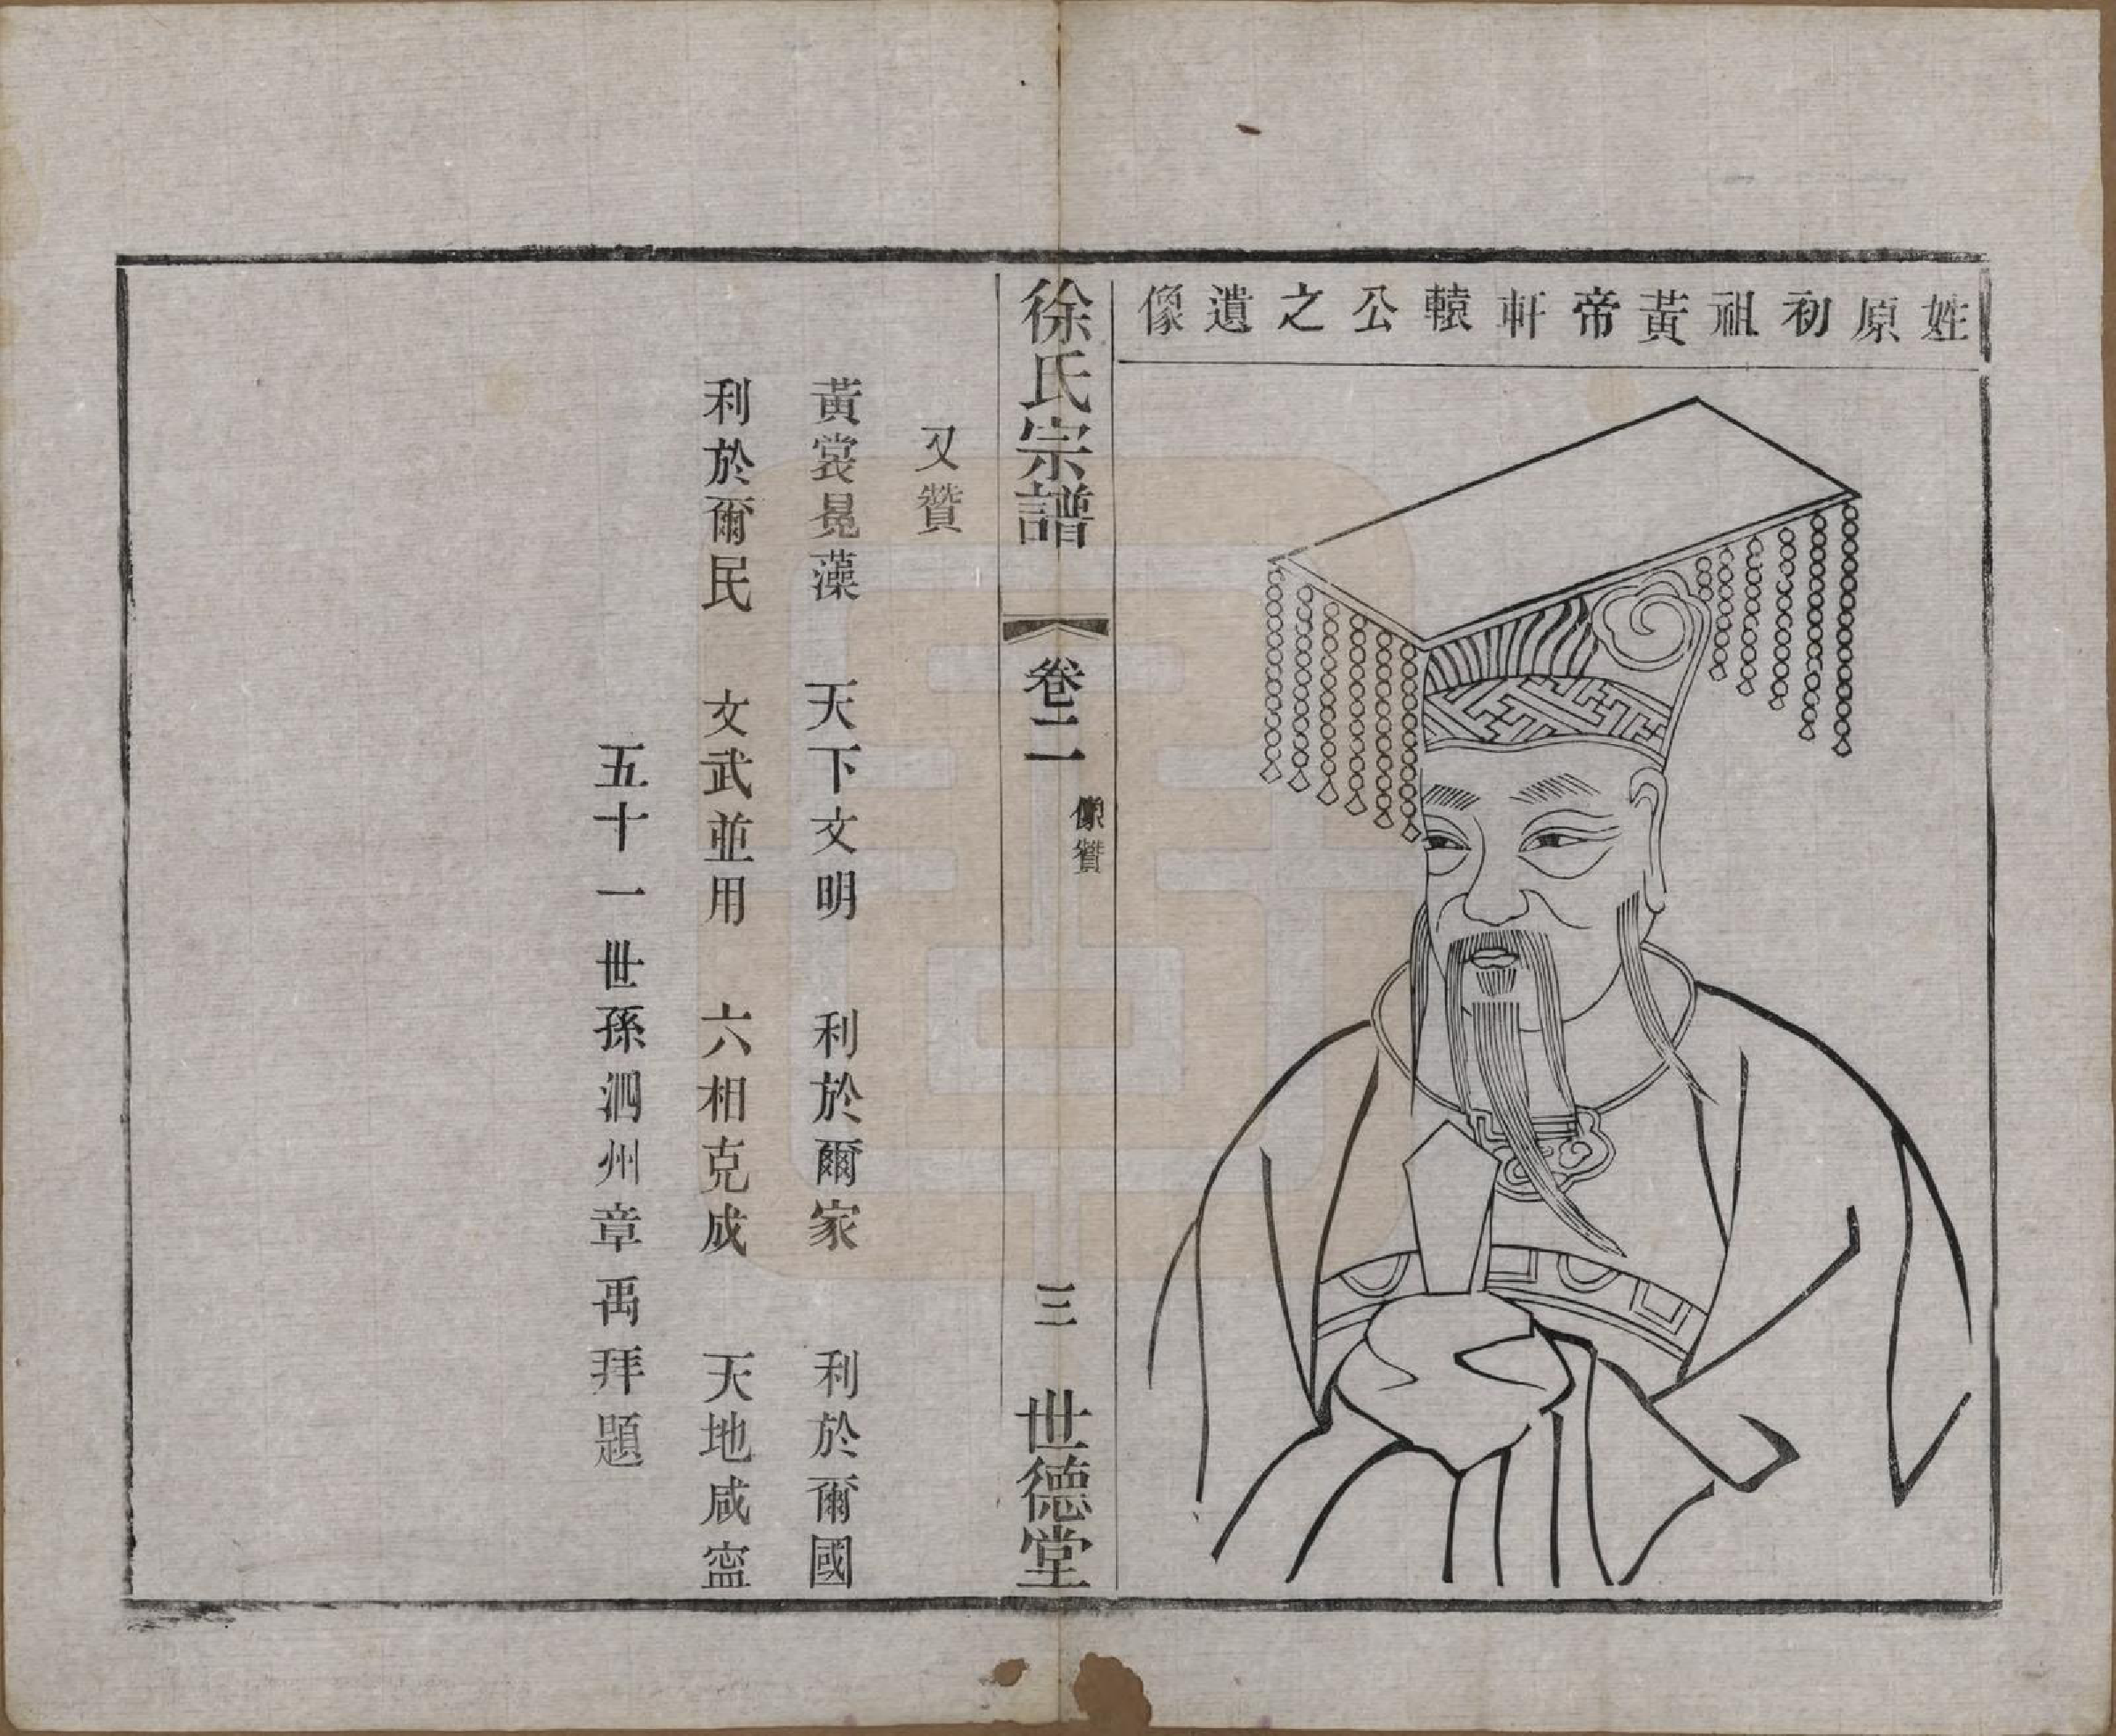 姓原初祖黃帝軒轅公之遺像
徐氏宗譜
卷二
像贊
三
世德堂
又贊
黃裳冕藻 天下文明 利於爾家 利於爾國
利於爾民 文武並用 六相克成 天地咸寍
五十一世孫泗州章禹拜題